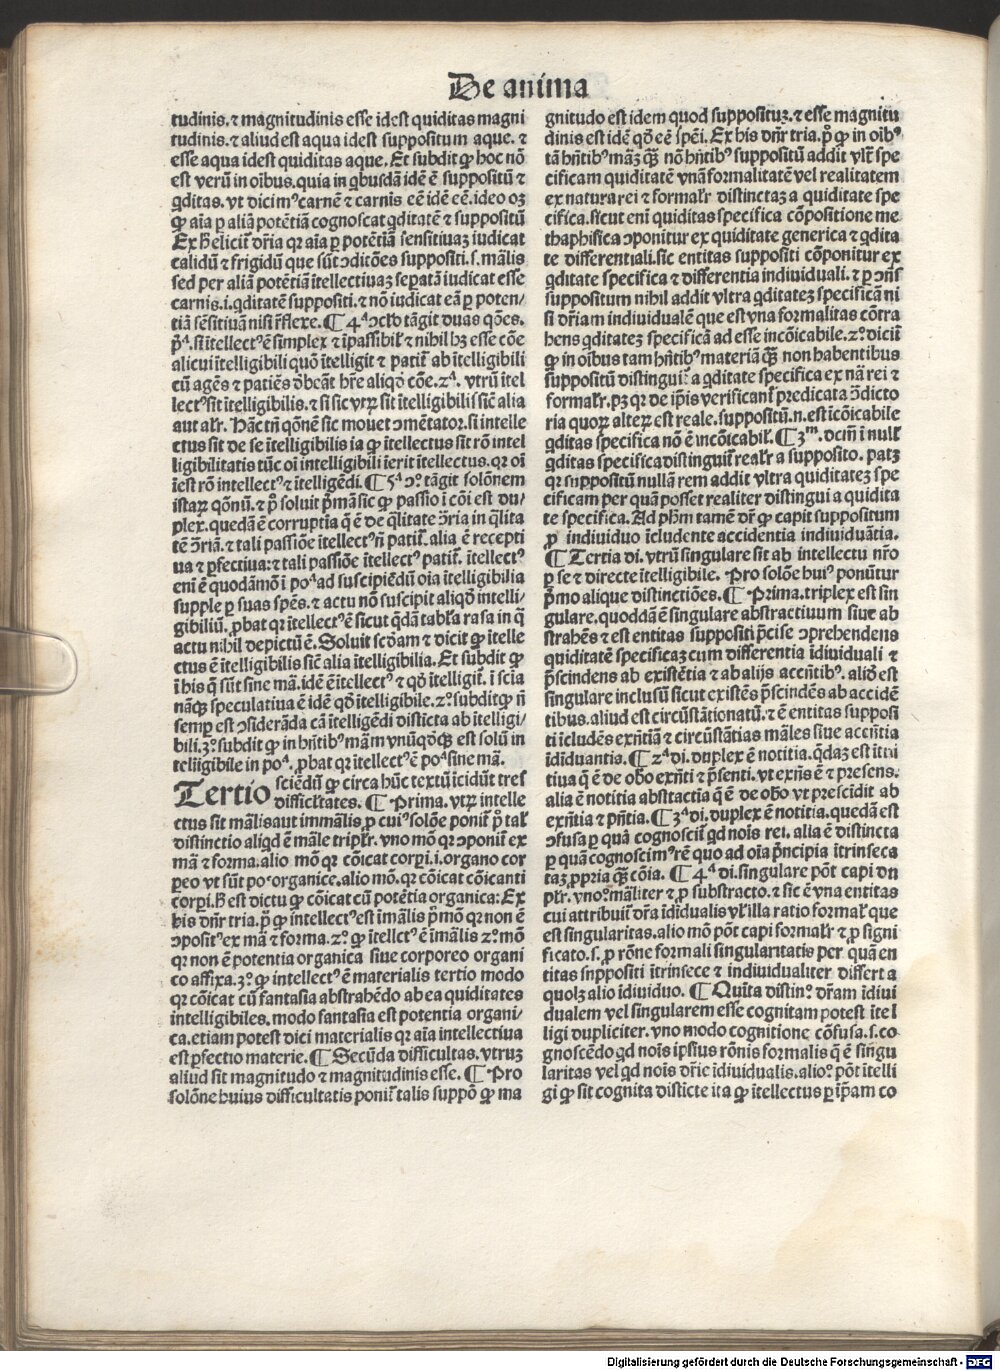 De anima
tudinis. ⁊ magnitudinis esse idest quiditas magni
tudinis. ⁊ aliud est aqua idest suppositum aque. ⁊
esse aqua idest quiditas aque. Et subdit ꝙ hoc nō
est verū in oībus. quia in qbusdā idē ē suppositū ⁊
qditas. vt dicimꝰ carnē ⁊ carnis eē idē eē. ideo oꝫ
ꝙ aīa ꝑ aliā potētiā cognoscat qditatē ⁊ suppositū
Ex h̄ elicit̄ dr̄ia qꝛ aīa ꝑ potētiā sensitiuaꝫ iudicat
calidū ⁊ frigidū que sūt ↄditōes suppositi. s. mālis
sed per aliā potētiā ītellectiuaꝫ seꝑatā iudicat esse
carnis. i. qditatē suppositi. ⁊ nō iudicat eā ꝑ poten⸗
tiā sēsitiuā nisi r̄flexe. ¶ 4ᵃ ↄclō tāgit duas qōes.
p̄ᵃ. si ītellectꝰ ē simplex ⁊ īpassibil̓ ⁊ nihil hꝫ esse cōe
alicui ītelligibili quō ītelligit ⁊ patit̄ ab ītelligibili
cū agēs ⁊ patiēs dēāt hr̄e aliqd cōe. 2ᵃ. vtrū ītel
lectꝰ sit ītelligibilis. ⁊ si sic vtꝝ sit ītelligibil̓ sic̄ alia
aut al̓r. Hāc tn̄ qōnē sic mouet ↄmētator. si intelle
ctus sit de se ītelligibilis ia ꝙ ītellectus sit rō intel
ligibilitatis tūc oī intelligibili īerit ītellectus. qꝛ oī
īest rō intellectꝰ ⁊ ītelligēdi. ¶ 5ᵃ ↄᵒ. tāgit solōnem
istaꝝ qōnū. ⁊ p̄ᵒ soluit p̄mā sic ꝙ passio ī cōi est du⸗
plex. quedā ē corruptīa q̄ ē de qlitate ↄ̄ria in qlita
tē ↄ̄riā. ⁊ tali passiōe ītellectꝰ n̄ patit̄. alia ē recepti
ua ⁊ ꝑfectiua: ⁊ tali passiōe ītellectꝰ patit̄. ītellectꝰ
eni ē quodāmō ī poᵃ ad suscipiēdū oīa ītelligibilia
supple ꝑ suas spēs. ⁊ actu nō suscipit aliqd intelli⸗
gibiliū. ꝓbat qꝛ ītellectꝰ ē sicut qdā tabl̓a rasa in q̄
actu nihil depictū ē. Soluit scdam ⁊ dicit ꝙ ītelle
ctus ē ītelligibilis sic̄ alia ītelligibilia. Et subdit ꝙ
ī his q̄ sūt sine mā. idē ē ītellectꝰ ⁊ qd ītelligit̄. ī scia
nāqꝫ speculatiua ē idē qd ītelligibile. 2ᵒ. subdit ꝙ n̄
semꝑ est ↄsiderāda cā ītelligēdi disticta ab ītelligi⸗
bili. 3ᵒ. subdit ꝙ in hn̄tibꝰ mām vnūqdqꝫ est solū in
telligibile in poᵃ. ꝓbat qꝛ ītellectꝰ ē poᵃ sine mā.
Tertio sciēdū ꝙ circa hūc textū īcidūt tres
difficl̓tates. ¶ Prima. vtꝝ intelle
ctus sit māl̓is aut immāl̓is ꝓ cuiꝰ solōe ponit̄ p̄ᵒ tal̓
distinctio aliqd ē māle tripl̓r. vno mō qꝛ ↄponit̄ ex
mā ⁊ forma. alio mō qꝛ cōicat corꝑi. i. organo cor
ꝑeo vt sūt poᵉ organice. alio mō. qꝛ cōicat cōicanti
corꝑi. h̄ est dictu ꝙ cōicat cū potētia organica: Ex
his dn̄r tria. p̄ᵒ ꝙ intellectꝰ est īmāl̓is p̄mō qꝛ non ē
ↄpositꝰ ex mā ⁊ forma. 2ᵒ. ꝙ ītellctꝰ ē īmāl̓is 2ᵒ. mō
qꝛ non ē potentia organica siue corporeo organi
co affixa. 3ᵒ. ꝙ intellectꝰ ē materialis tertio modo
qꝛ cōicat cū fantasia abstrahēdo ab ea quiditates
intelligibiles. modo fantasia est potentia organi⸗
ca. etiam potest dici materialis qꝛ aīa intellectiua
est ꝑfectio materie. ¶ Secūda difficultas. vtruꝫ
aliud sit magnitudo ⁊ magnitudinis esse. ¶ Pro
solōne huius difficultatis ponit̄ talis suppō ꝙ ma
gnitudo est idem quod suppositūꝫ. ⁊ esse magnitu
dinis est idē qd eē spēi. Ex his dn̄r tria. p̄ᵒ ꝙ in oībꝰ
tā hn̄tibꝰ māꝫ qꝫ̄ nō hn̄tibꝰ suppositū addit vl̓t̄ spe
cificam quiditatē vnā formalitatē vel realitatem
ex natura rei ⁊ formal̓r distinctaꝫ a quiditate spe
cifica. sicut eni quiditas specifica cōpositione me⸗
thaphisica ↄponitur ex quiditate generica ⁊ qdita
te differentiali. sic entitas suppositi cōponitur ex
qditate specifica ⁊ differentia indiuiduali. ⁊ ꝑ ↄn̄s
suppositum nihil addit vltra qditateꝫ specificā ni
si dr̄iam indiuidualē que est vna formalitas cōtra
hens qditateꝫ specificā ad esse incōicabile. 2ᵒ. dicit̄
ꝙ in oībus tam hn̄tibꝰ materiā qꝫ̄ non habentibus
suppositū distinguit̄ a qditate specifica ex nā rei ⁊
formal̓r. pꝫ qꝛ de ip̄is verificant̄ predicata ↄ̄dicto
ria quoꝝ alteꝝ est reale. suppositū. n. est īcōicabile
qditas specifica nō ē incōicabil̓. ¶ 3ᵐ. dcm̄ ī null̓
qditas specifica distinguit̄ real̓r a supposito. patꝫ
qꝛ suppositū nullā rem addit vltra quiditateꝫ spe
cificam per quā posset realiter distingui a quidita
te specifica. Ad phm̄ tamē dr̄ ꝙ capit suppositum
ꝓ indiuiduo īcludente accidentia indiuiduātia.
¶ Tertia di. vtrū singulare sit ab intellectu nr̄o
ꝑ se ⁊ directe ītelligibile. Pro solōe huiꝰ ponūtur
p̄mo alique distinctiōes. ¶ Prima. triplex est sin
gulare. quoddā ē singulare abstractiuum siue ab
strahēs ⁊ est entitas suppositi p̄cise ↄprehendens
quiditatē specificaꝫ cum differentia īdiuiduali ⁊
p̄scindens ab existētia ⁊ ab alijs accn̄tibꝰ. aliḋ est
singulare inclusū sicut existēs p̄scindēs ab accidē
tibus. aliud est circūstātionatū. ⁊ ē entitas supposi
ti īcludēs exn̄tiā ⁊ circūstātias māles siue accn̄tia
īdiuiduantia. ¶ 2ᵃ di. duplex ē notitia. qdaꝫ est ītui
tiua q̄ ē de obō exn̄ti ⁊ p̄senti. vt exn̄s ē ⁊ presens.
alia ē notitia absttactīa q̄ ē de obō vt prescidit ab
exn̄tia ⁊ pn̄tia. ¶ 3ᵃ di. duplex ē notitia. quedā est
ↄfusa ꝑ quā cognoscit̄ qd nois rei. alia ē distincta
ꝑ quā cognoscimꝰ rē quo ad oīa p̄ncipia ītrinseca
taꝫ ꝓpria qꝫ̄ cōia. ¶ 4ᵃ di. singulare pōt capi du
pl̓r. vnoᵒ. māliter ⁊ ꝓ substracto. ⁊ sic ē vna entitas
cui attribuit̄ dr̄a īdīdualis vl̓ illa ratio formal̓ que
est singularitas. alio mō pōt capi formal̓r ⁊ ꝓ signi
ficato. s. ꝓ rōne formali singularitatis per quā en
titas snppositi ītrinsece ⁊ indiuidualiter differt a
quolꝫ alio īdiuiduo. ¶ Quīta distinᵒ. dr̄am īdiui
dualem vel singularem esse cognitam potest ītel
ligi dupliciter. vno modo cognitione cōfusa. s. co⸗
gnoscēdo qd nois ipsius rōnis formalis q̄ ē singu
laritas vel qd nois dr̄ie īdiuidualis. alioᵒ. pōt ītelli
gi ꝙ sit cognita disticte ita ꝙ ītellectus ꝑ ip̄am co
Digitalisierung gefördert durch die Deutsche Forschungsgemeinschaft - DFG